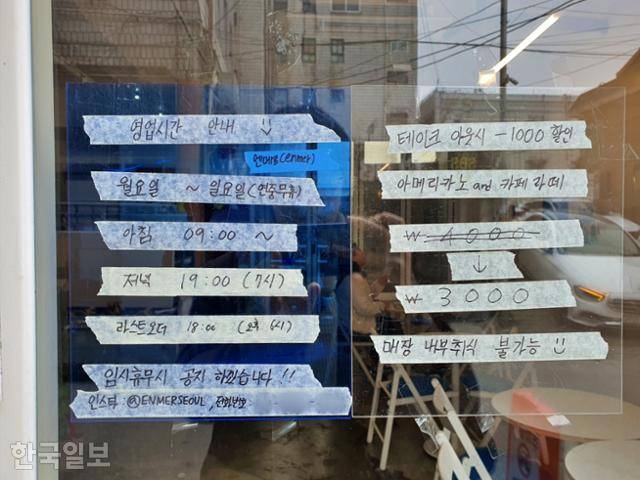 영업시간 안내 :)
엔메르(enmer)
월요일 ~ 일요일(연중무휴)
아침 09:00 ~
저녁 19:00 (7시)
라스트오더 18:00 (오후 6시)
임시휴무시 공지 하겠습니다 !!
인스타 : @ENMERSEOUL, 전화번호
테이크 아웃시 -1000 할인
아메리카노 and 카페라떼
₩ 4000
↓
₩ 3000
매장 내부취식 불가능 :)
한국일보